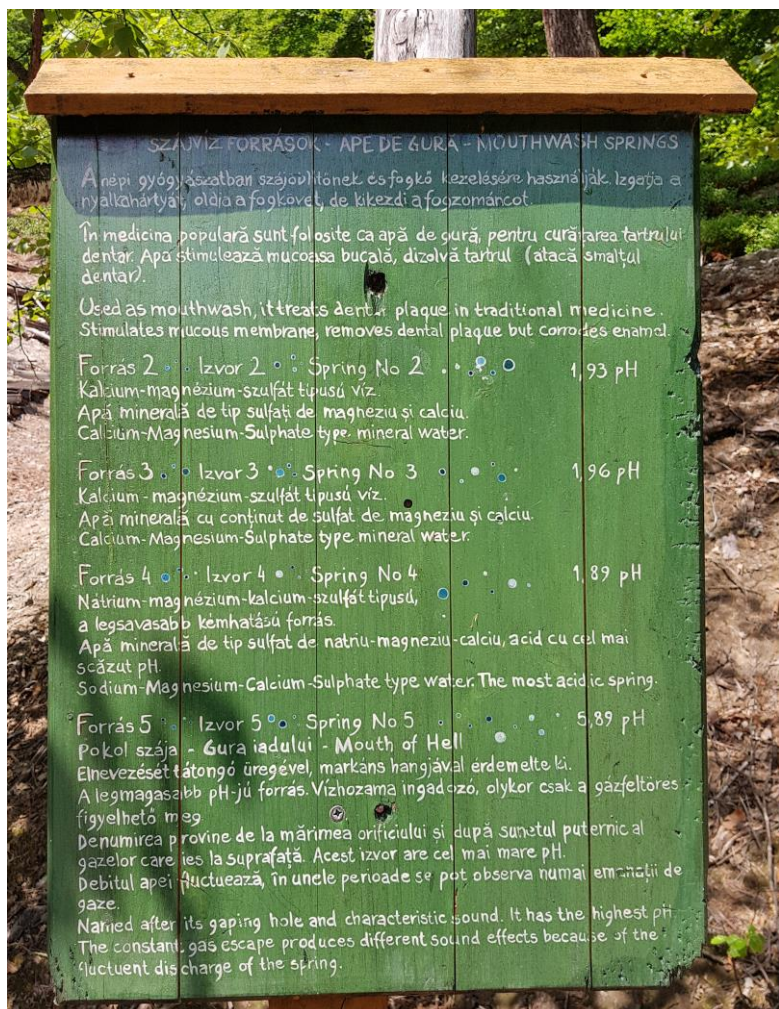 SZÁJVÍZ FORRÁSOK - APE DE GURĂ - MOUTHWASH SPRINGS
A népi gyógyászatban szájöblítőnek és fogkő kezelésére használják. Izgatja a
nyálkahártyát, oldja a fogkövet, de kikezdi a fogzománcot.
În medicina populară sunt folosite ca apă de gură, pentru curățarea tartrului
dentar. Apa stimulează mucoasa bucală, dizolvă tartrul (atacă smalțul
dentar).
Used as mouthwash, it treats dental plaque in traditional medicine.
Stimulates mucous membrane, removes dental plaque but corrodes enamel.
Forrás 2 Izvor 2 Spring No 2 1,93 pH
Kalcium-magnézium-szulfát típusú víz.
Apă minerală de tip sulfați de magneziu și calciu.
Calcium-Magnesium-Sulphate type mineral water.
Forrás 3 Izvor 3 Spring No 3 1,96 pH
Kalcium-magnézium-szulfát típusú víz.
Apă minerală cu conținut de sulfat de magneziu și calciu.
Calcium-Magnesium-Sulphate type mineral water.
Forrás 4 Izvor 4 Spring No 4 1,89 pH
Nátrium-magnézium-kalcium-szulfát típusú,
a legsavasabb kémhatású forrás.
Apă minerală de tip sulfat de natriu-magneziu-calciu, acid cu cel mai
scăzut pH.
Sodium-Magnesium-Calcium-Sulphate type water. The most acidic spring.
Forrás 5 Izvor 5 Spring No 5 5,89 pH
Pokol szája - Gura iadului - Mouth of Hell
Elnevezését tátongó üregével, markáns hangjával érdemelte ki.
A legmagasabb pH-jú forrás. Vízhozama ingadozó, olykor csak a gázfeltörés
figyelhető meg
Denumirea provine de la mărimea orificiului și după sunetul puternic al
gazelor care ies la suprafață. Acest izvor are cel mai mare pH.
Debitul apei fluctuează, în unele perioade se pot observa numai emanații de
gaze.
Named after its gaping hole and characteristic sound. It has the highest pH.
The constant gas escape produces different sound effects because of the
fluctuent discharge of the spring.